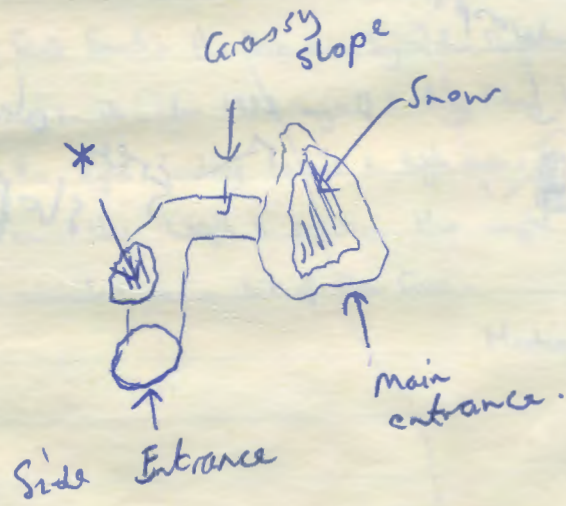 Grassy
slope
Snow
*
Main
entrance.
Side Entrance